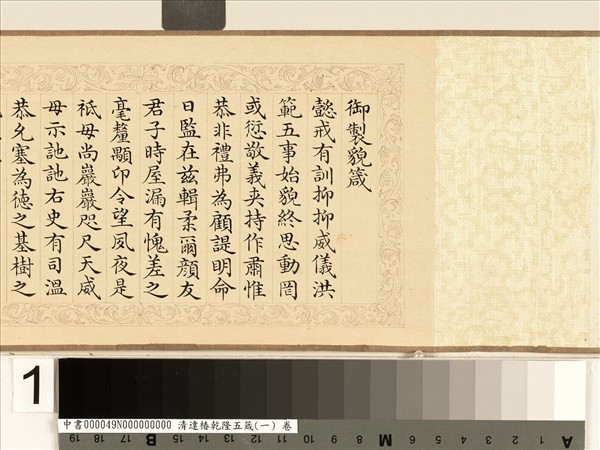 御製貌箴
懿戒有訓抑抑威儀洪
範五事始貌終思動罔
或愆敬義夾持作肅惟
恭非禮弗為顧諟明命
日監在茲輯柔爾顏友
君子時屋漏有愧差之
毫釐顒卬令望夙夜是
祗毋尚巖巖咫尺天威
毋示訑訑右史有司溫
恭允塞為德之基樹之
1
中書000049N000000000 清達椿乾隆五箴(一) 卷
19 18 17 B 16 15 14 13 12 11 10 9 8 M 7 6 5 4 3 2 A 1